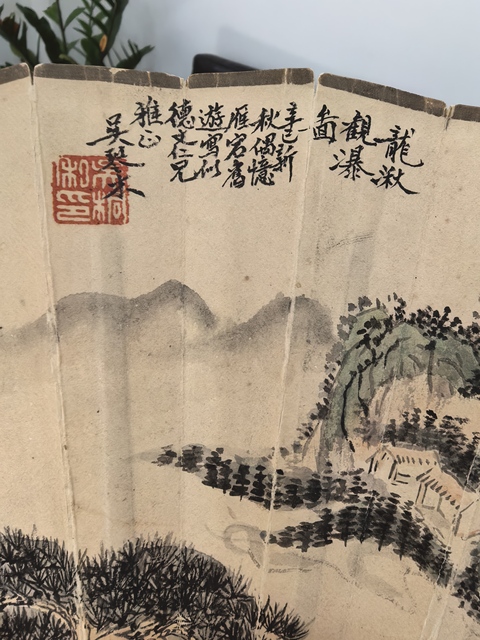 龍湫
觀瀑
啚
辛巳新
秋偶憶
雁宕舊
遊寫似
德文仁兄
雅正
吳琴木